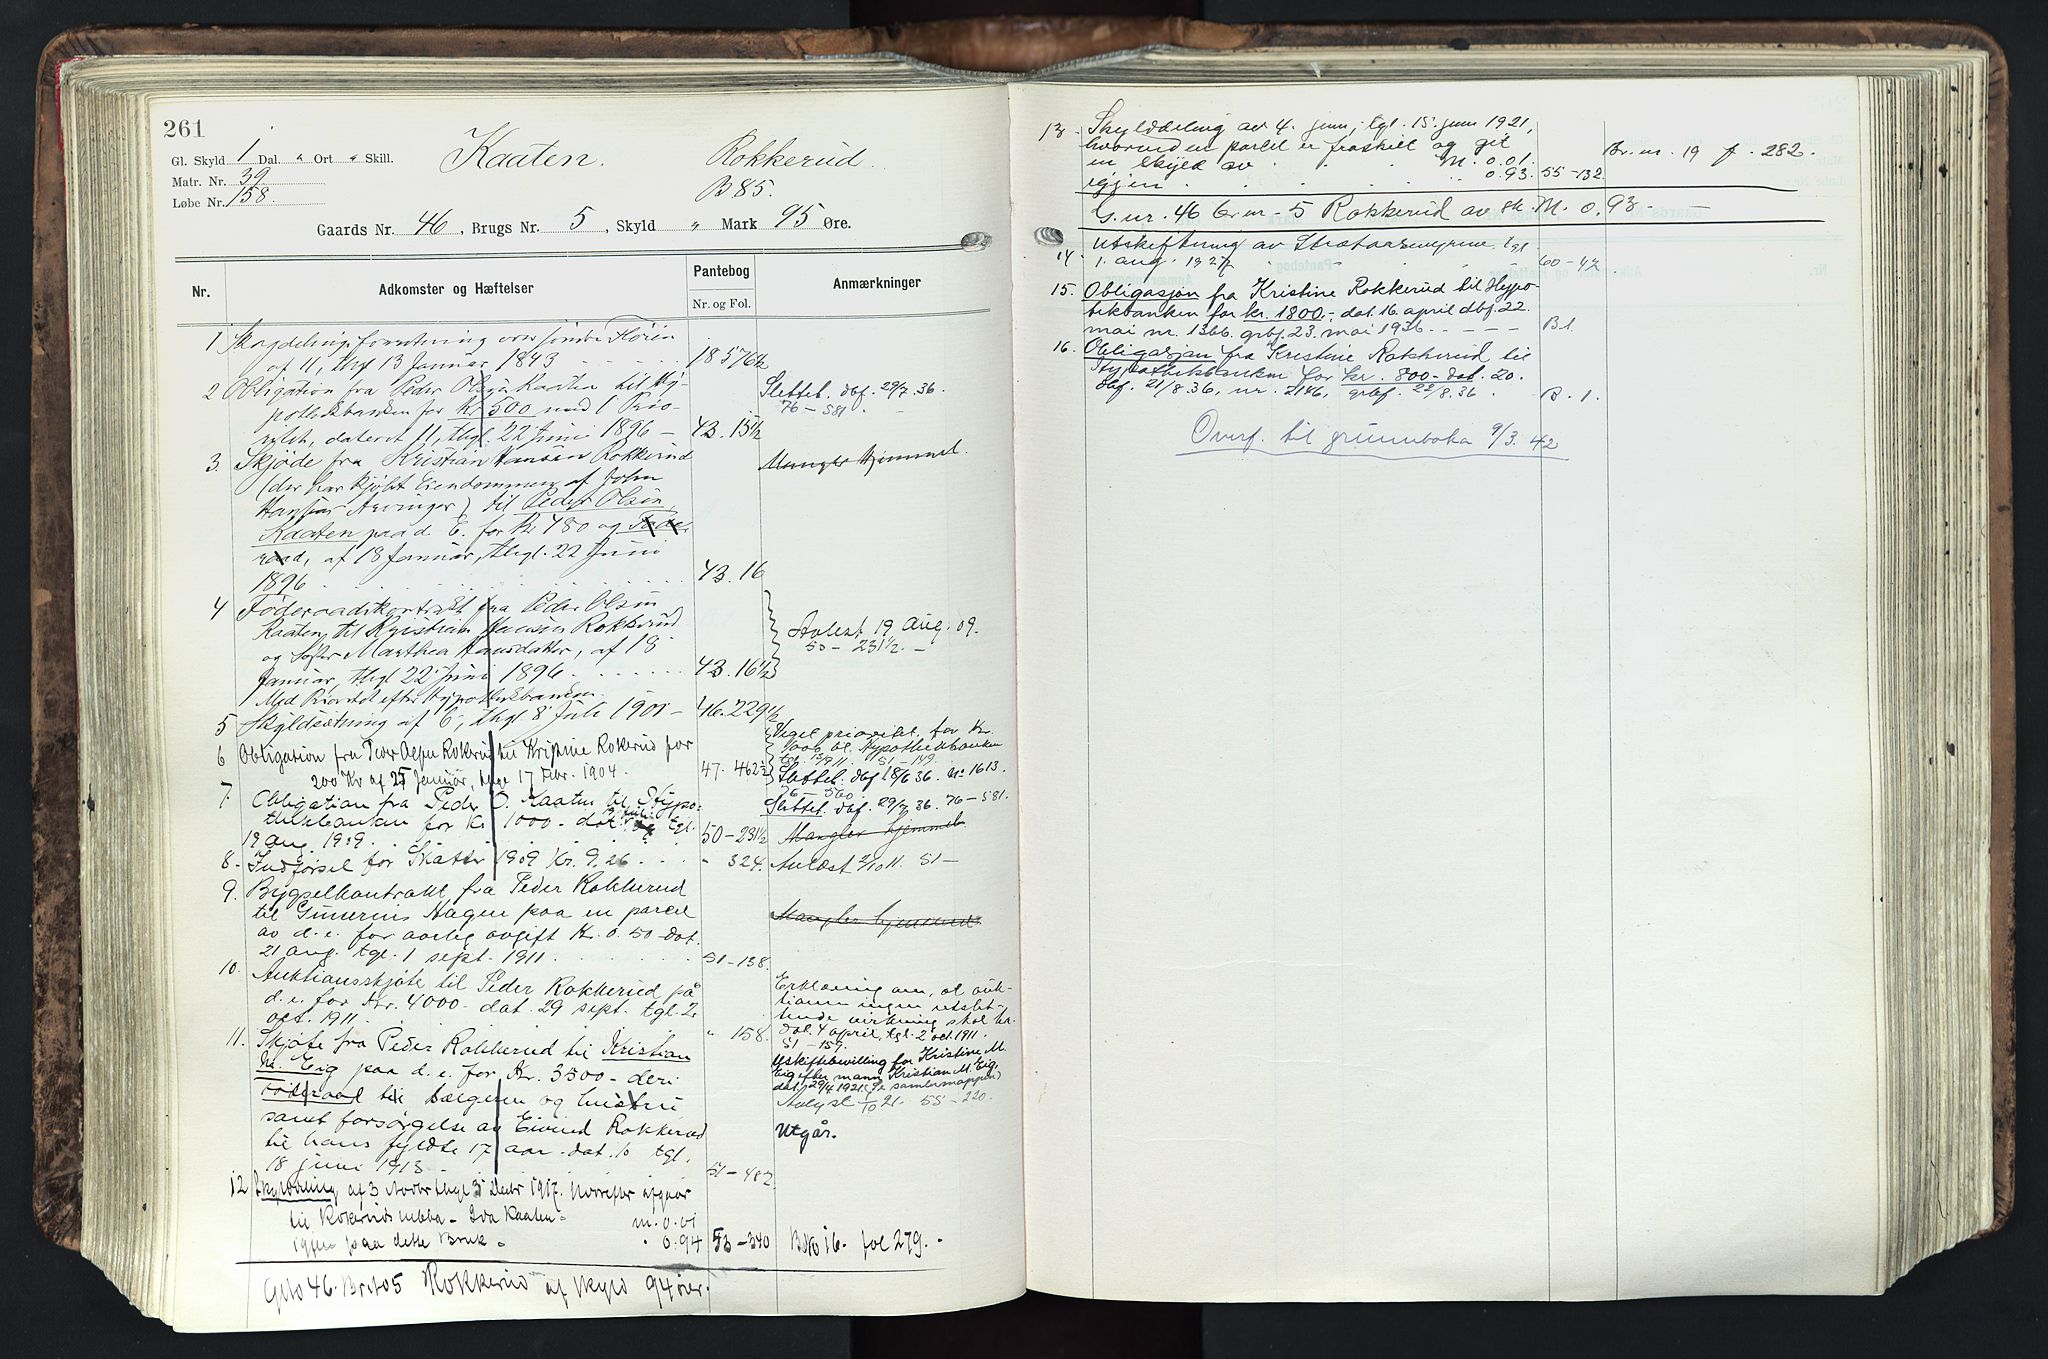 261
Gl. Skyld 1 Dal. " Ort " Skill.
Matr. Nr. 39
Løbe Nr. 158.
Kaaten. Rokkerud.
B 85.
Gaards Nr. 46, Brugs Nr. 5, Skyld " Mark 95 Øre.
Nr. Adkomster og Hæftelser Pantebog Anmærkninger
Nr. og Fol.
1 af 11, thgl 13 Januar 1843 18 576½
2 Obligation fra Peder Olsen Kaaten til Hy-
pothekbanken for Kr 500 med 1 Prio-
ritet, dateret 11, thgl. 22 Juni 1896 — 43. 15½
Slettet. dbf. 29/7. 36.
76 – 581
3. Skjøde fra Kristian Hansen Rokkerud
(der har kjøbt Eiendommen af John
Hansens Arvinger) til Peder Olsen
Kaaten paa d. E. for Kr 480 og Føde-
raad, af 18 Januar, thgl. 22 Juni
1896 43. 16
Mangler Hjemmel.
4 Føderaadskontrakt fra Peder Olsen
Kaaten til Kristian Hansen Rokkerud
og Marthea Hansdatter, af 18
Januar, thgl 22 Juni 1896 43. 16½
Med Prioritet efter Hypothekbanken.
Avlest 19 Aug. 09.
50 – 231½. –
5 Skyldsætning af 6, thgl 8 Juli 1901 – 46. 229½
6 Obligation fra Peder Olsen Rokerud til Kristine Rokerud for
200 Kr af 25 Januar, thgl 17 Febr. 1904. 47. 462½
Veget prioritet for Kr.
1000 til Hypothekbanken
51 – 149.
Slettet. dbf 18/6 36. No 1613.
76 – 560
7. Obligation fra Peder O. Kaaten til Hypo-
thekbanken for Kr 1000 – dat. tgl.
19 aug. 1909. 50 – 231½
Slettet. dbf. 29/7. 36. 76 – 581.
Mangler hjemmel
8. Indførsel for Skatter 1909 Kr. 9.26 " 324.
Avlæst 2/10 11. 51 –
9. Bygselkontrakt fra Peder Rokkerud
til Gunerius Hagen paa en parcel
av d. e. for aarlig avgift Kr. 0.50 – dat.
21 aug. tgl. 1 sept. 1911 51 – 138.
Mangler hjemmel
10. Auktionsskjøte til Peder Rokkerud på
d. e. for Kr. 4000 – dat. 29 sept. tgl. 2
oct. 1911. " 158.
Erklæring om, at auk-
tionen ingen utslet-
tende virkning skal ha.
dat. 4 april, tgl. 2 oct. 1911.
51 – 157.
11. Skjøte fra Peder Rokkerud til Kristian
M. Eig paa d. e. for Kr. 3500 – deri
föderaad til sælgeren og hustru
samt forsørgelse av Eivind Rokkerud
til hans fyldte 17 aar. dat. 10 tgl.
18 juni 1913 51 – 482
Uskiftebevilling for Kristine M.
Eig efter mann Kristian M. Eig,
dat. 29/4 1921 (se samlemappen)
Avlyst 1/10 21. 55 – 220.
Utgår.
12 Skylddeling af 3 Novbr thgl 3 Decbr 1917. hvorefter afgaar
til Rokeruds – Ida Kaaten – m. 0.01
igjen paa dette Bruk – " 0.94 53 – 340
BNo 16. fol 279. –
GNo 46. BrNo 5 Rokkerud af skyld 94 øre.
13. Skylddeling av 4. juni, tgl. 15. juni 1921,
hvorved en parcel er fraskilt og git
en skyld av M. 0.01.
igjen 0.93. 55 – 132.
Br. nr. 19 f. 282.
G. nr. 46 br. nr. 5 Rokkerud av sk. M. 0,93. –
14. Utskiftning av tgl
1. aug. 1927 60 – 42
15. Obligasjon fra Kristine Rokkerud til Hypo-
tekbanken for kr. 1800 – dat. 16. april dbf. 22.
mai nr. 1366, grbf. 23. mai 1936. – – – – B. 1.
16. Obligasjon fra Kristine Rokkerud til
Hypotekbanken for kr. 800 – dat. 20.
dbf. 21/8. 36, nr. 2186, grbf. 22/8. 36. B. 1.
Overf. til grunnboka 9/3. 42